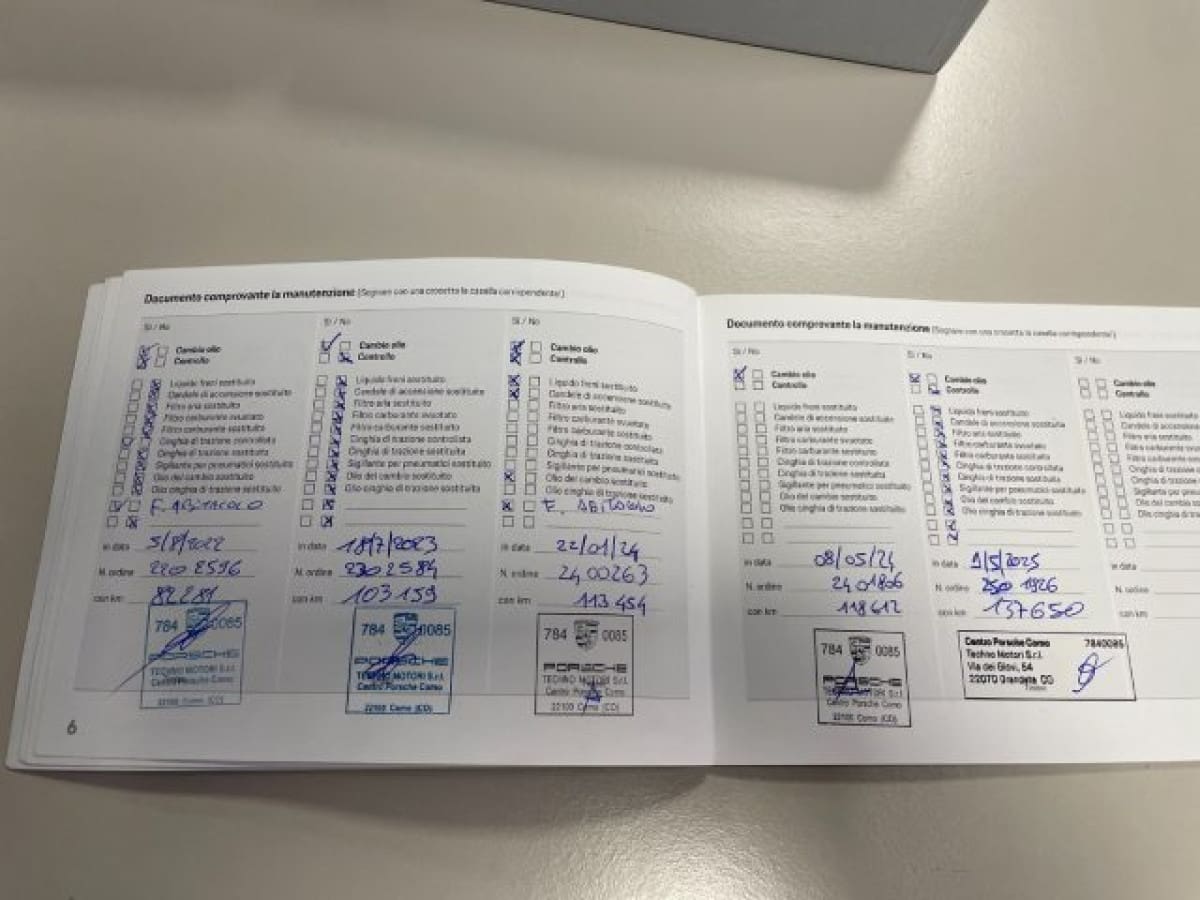 Documento comprovante la manutenzione (Segnare con una crocetta la casella corrispondente!)
Si / No
Cambio olio
Controllo
Liquido freni sostituito
Candele di accensione sostituite
Filtro aria sostituito
Filtro carburante svuotato
Filtro carburante sostituito
Cinghia di trazione controllata
Cinghia di trazione sostituita
Sigillante per pneumatici sostituito
Olio del cambio sostituito
Olio cinghia di trazione sostituito
F. ABITACOLO
in data 5/8/2022
N. ordine 220 2596
con km
784 0085
PORSCHE
TECHNO MOTORI S.r.l.
Centro Porsche Como
22100 Como (CO)
Si / No
Cambio olio
Controllo
Liquido freni sostituito
Candele di accensione sostituite
Filtro aria sostituito
Filtro carburante svuotato
Filtro carburante sostituito
Cinghia di trazione controllata
Cinghia di trazione sostituita
Sigillante per pneumatici sostituito
Olio del cambio sostituito
Olio cinghia di trazione sostituito
in data 18/7/2023
N. ordine 230 2584
con km 103159
784 0085
PORSCHE
TECHNO MOTORI S.r.l.
Centro Porsche Como
22100 Como (CO)
Si / No
Cambio olio
Controllo
Liquido freni sostituito
Candele di accensione sostituite
Filtro aria sostituito
Filtro carburante svuotato
Filtro carburante sostituito
Cinghia di trazione controllata
Cinghia di trazione sostituita
Sigillante per pneumatici sostituito
Olio del cambio sostituito
Olio cinghia di trazione sostituito
F.
in data 22/01/24
N. ordine 2400263
con km 113.454
784 0085
PORSCHE
TECHNO MOTORI S.r.l.
Centro Porsche Como
22100 Como (CO)
6
Documento comprovante la manutenzione (Segnare con una crocetta la casella corrispondente!)
Si / No
Cambio olio
Controllo
Liquido freni sostituito
Candele di accensione sostituite
Filtro aria sostituito
Filtro carburante svuotato
Filtro carburante sostituito
Cinghia di trazione controllata
Cinghia di trazione sostituita
Sigillante per pneumatici sostituito
Olio del cambio sostituito
Olio cinghia di trazione sostituito
in data 08/05/24
N. ordine 2401806
con km 118612
784 0085
PORSCHE
TECHNO MOTORI S.r.l.
Centro Porsche Como
22100 Como (CO)
Si / No
Cambio olio
Controllo
Liquido freni sostituito
Candele di accensione sostituite
Filtro aria sostituito
Filtro carburante svuotato
Filtro carburante sostituito
Cinghia di trazione controllata
Cinghia di trazione sostituita
Sigillante per pneumatici sostituito
Olio del cambio sostituito
Olio cinghia di trazione sostituito
in data
N. ordine 250 1926
con km 137650
Centro Porsche Como 7840085
Techno Motori S.r.l.
Via dei Giovi, 54
22070 Grandate CO
Si / No
Cambio olio
Controllo
Liquido freni sostituito
Candele di accensione
Filtro aria sostituito
Filtro carburante
Filtro carburante
Cinghia di trazione
Cinghia di trazione
Sigillante per
Olio del cambio
Olio cinghia di
in data
N. ordine
con km